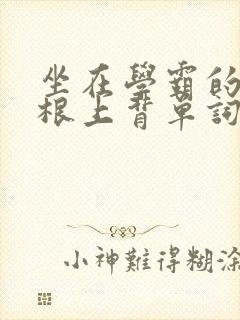 坐在學霸的
根上背單詞
小神難得糊涂